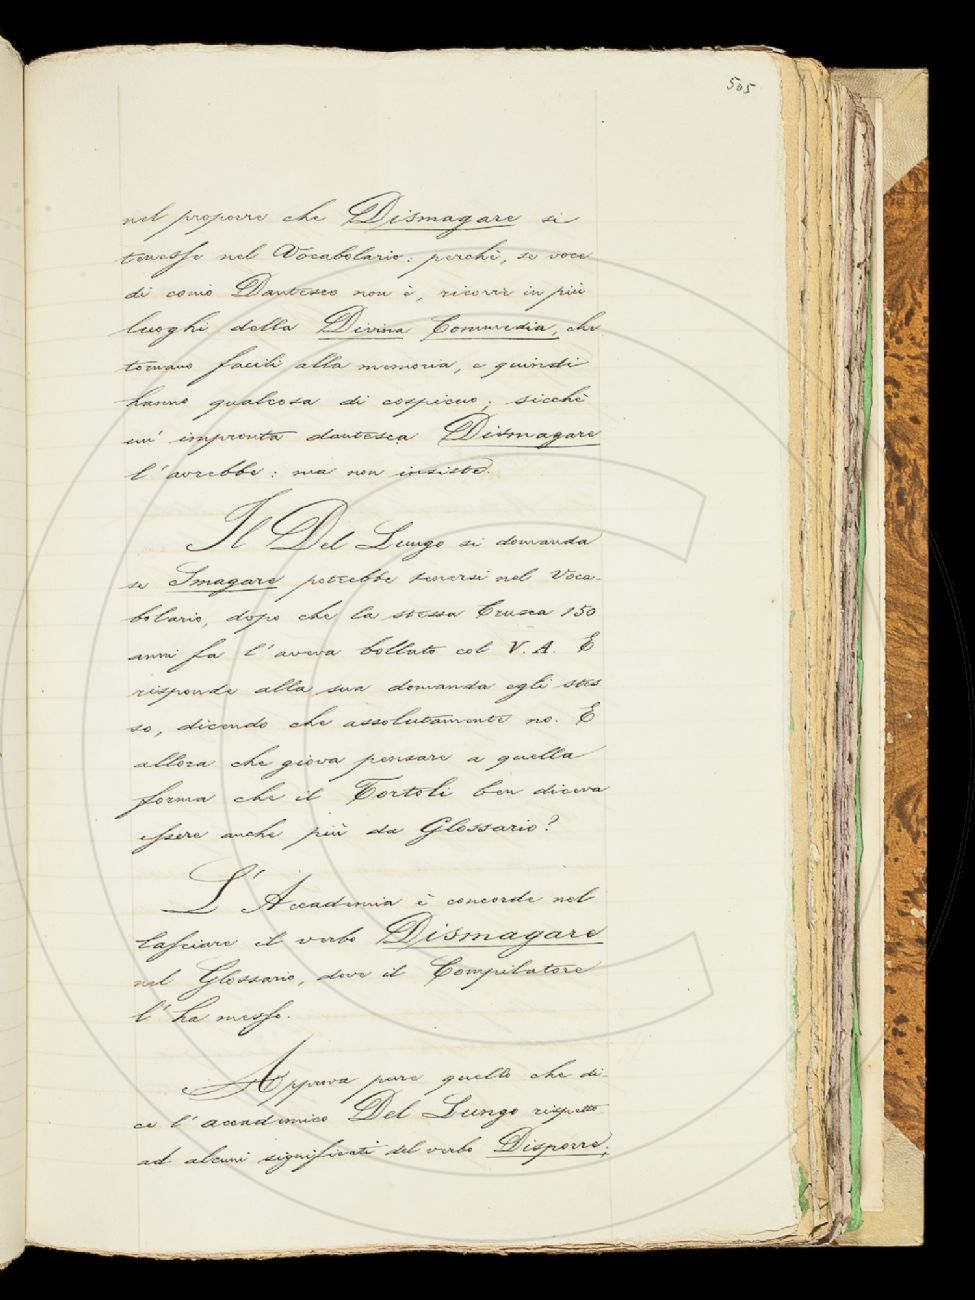 505
nel proporre che Dismagare si
tenesse nel Vocabolario: perchè, se voce
di conio Dantesco non è, ricorre in più
luoghi della Divina Commedia, che
tornano facili alla memoria, e quindi
hanno qualcosa di cospicuo; sicchè
un' impronta dantesca Dismagare
l'avrebbe: ma non insiste.
Il Del Lungo si domanda
se Smagare potrebbe tenersi nel Voca-
bolario, dopo che la stessa Crusca 150
anni fa l'aveva bollato col V. A. E
risponde alla sua domanda egli stes
so, dicendo che assolutamente no. E
allora che giova pensare a quella
forma che il Tortoli ben diceva
essere anche più da Glossario?
L'Accademia è concorde nel
lasciare il verbo Dismagare
nel Glossario, dove il Compilatore
l'ha messo.
Approva pure quello che di-
ce l'accademico Del Lungo rispetto
ad alcuni significati del verbo Disporre;